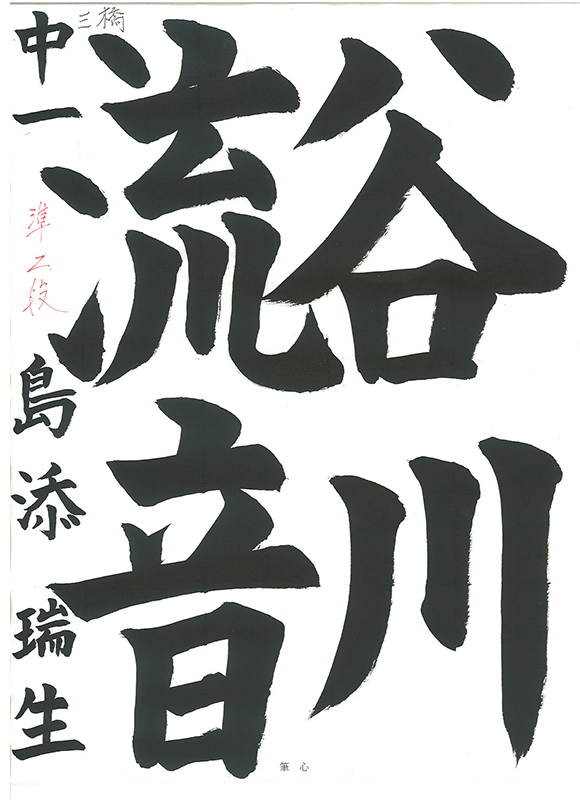 谷川
流音
中一 準二段 島添 瑞生
三橋
心筆